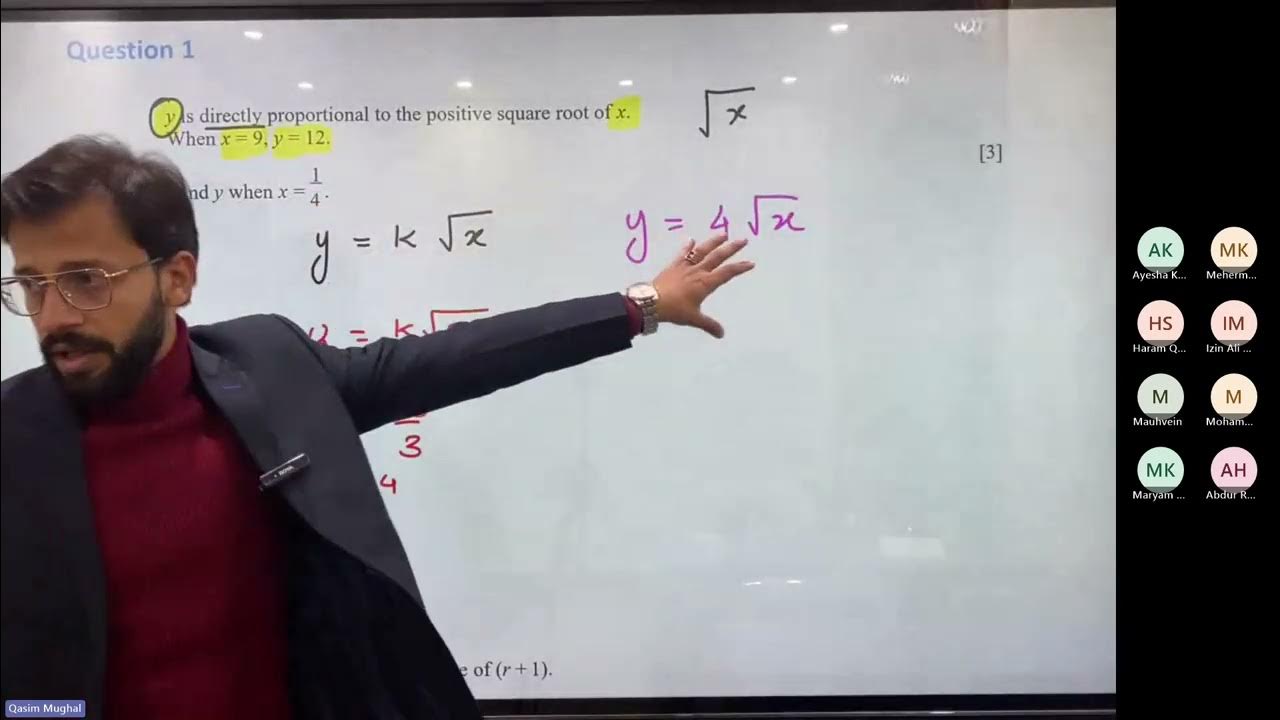 Question 1
y is directly proportional to the positive square root of x.
When x = 9, y = 12.
[3]
nd y when x = 1/4.
√x
y = k √x
y = 4 √x
= k√
3
4
e of (r + 1).
AK
MK
Ayesha K...
Meherm...
HS
IM
Haram Q...
Izin Ali ...
M
M
Mauhvein
Moham...
MK
AH
Maryam ...
Abdur R...
Qasim Mughal